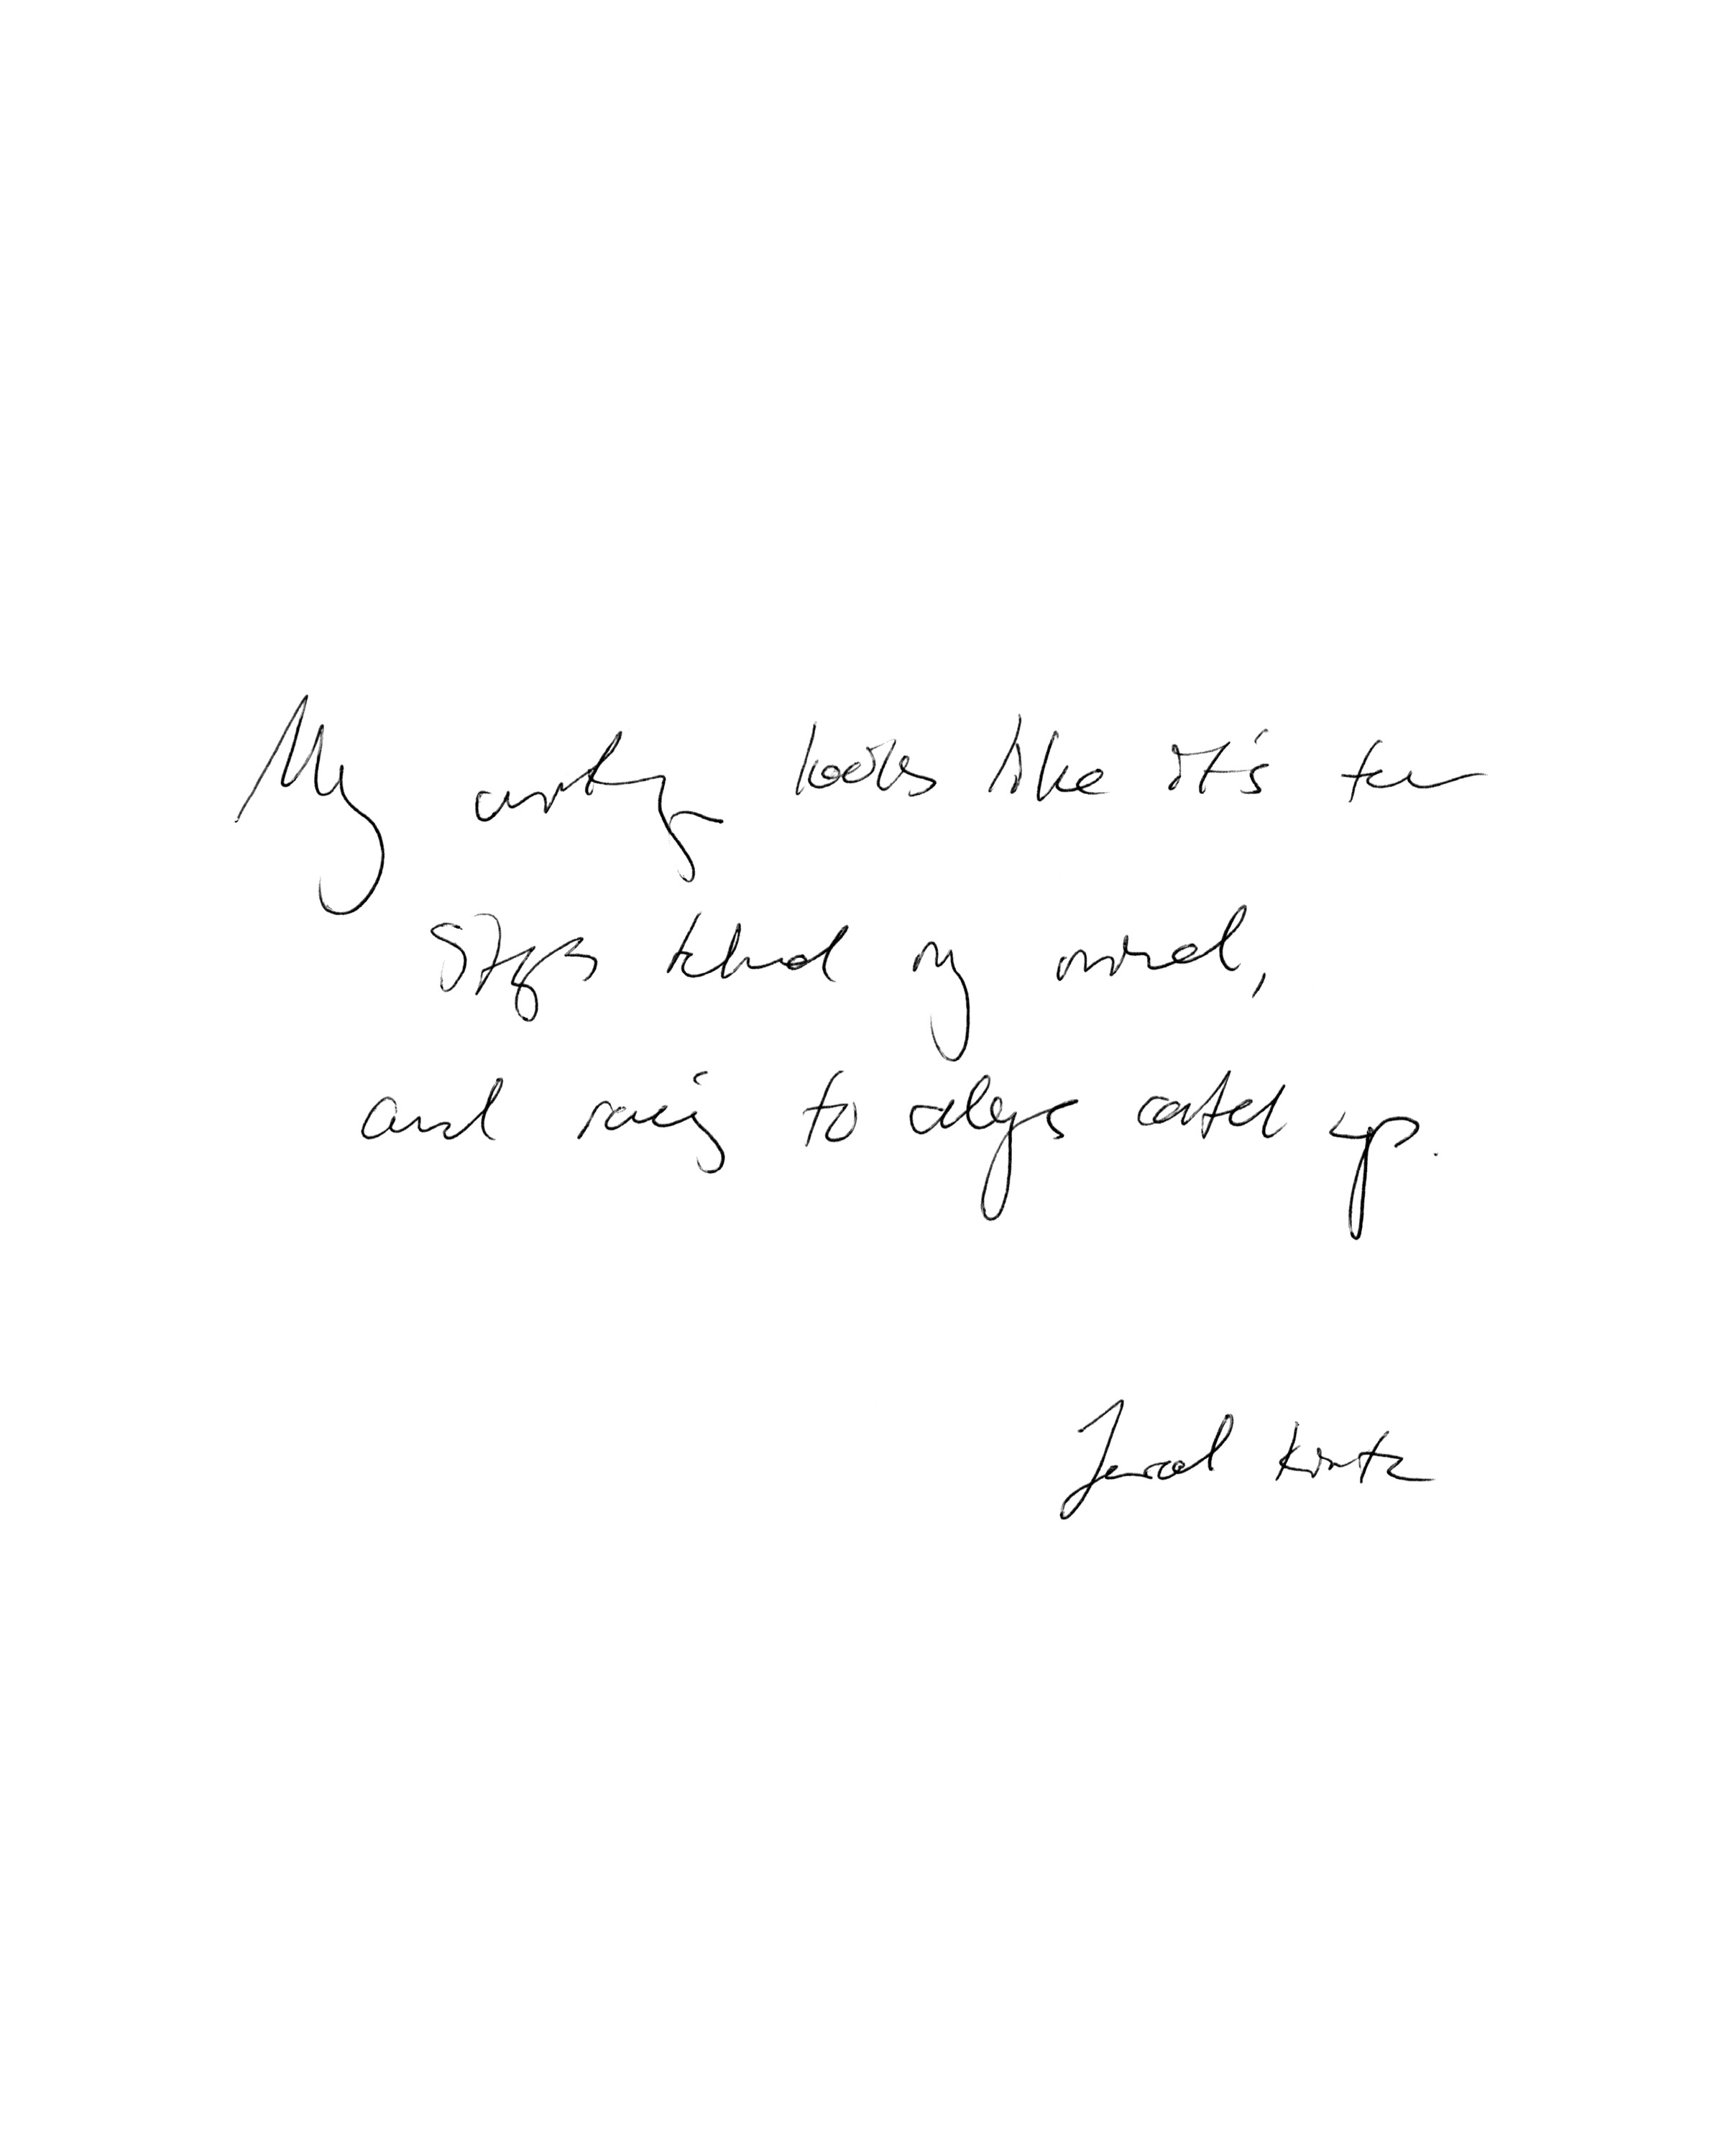 My writing looks like it's ten
steps behind my mind,
and racing to always catch up.
Jarod Kintz